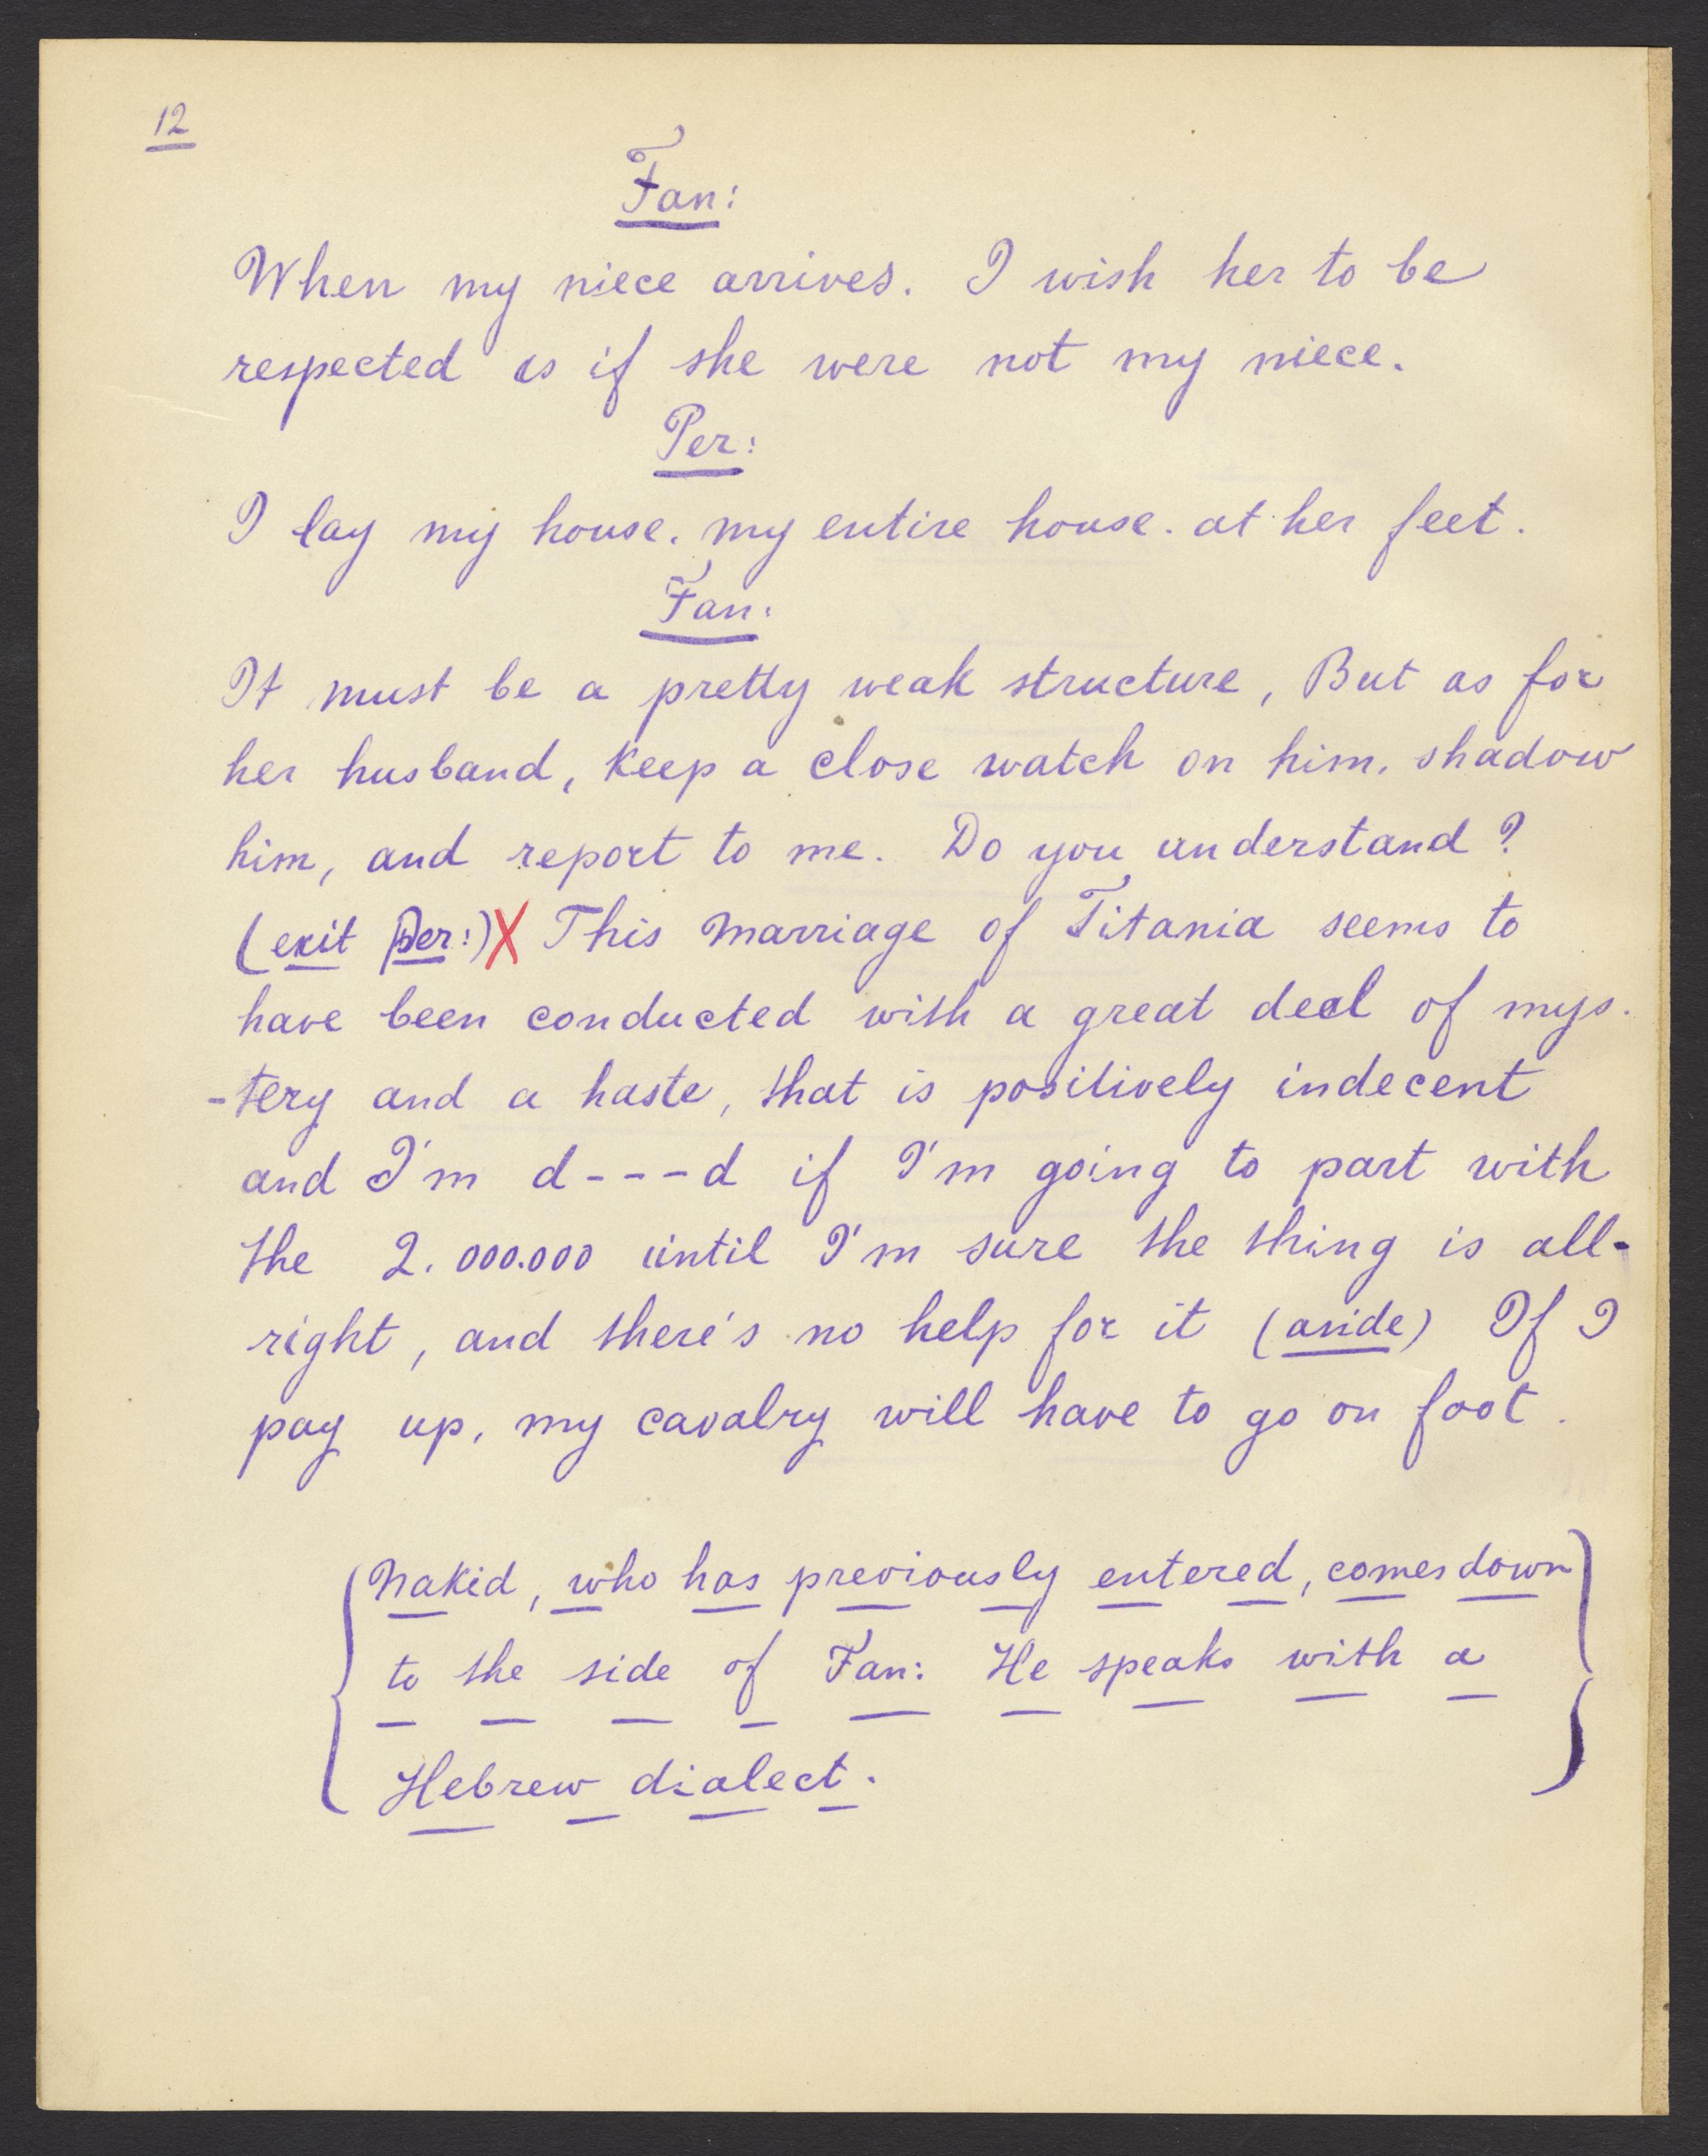 12
Fan:
When my niece arrives. I wish her to be
respected as if she were not my niece.
Per:
I lay my house. my entire house. at her feet.
Fan:
It must be a pretty weak structure, But as for
her husband, keep a close watch on him. shadow
him, and report to me. Do you understand?
(exit Per:) X This marriage of Titania seems to
have been conducted with a great deal of mys.
-tery and a haste, that is positively indecent
and I'm d---d if I'm going to part with
the 2.000.000 until I'm sure the thing is all-
right, and there's no help for it (aside) If I
pay up, my cavalry will have to go on foot.
Nakid, who has previously entered, comes down
to the side of Fan: He speaks with a
Hebrew dialect.